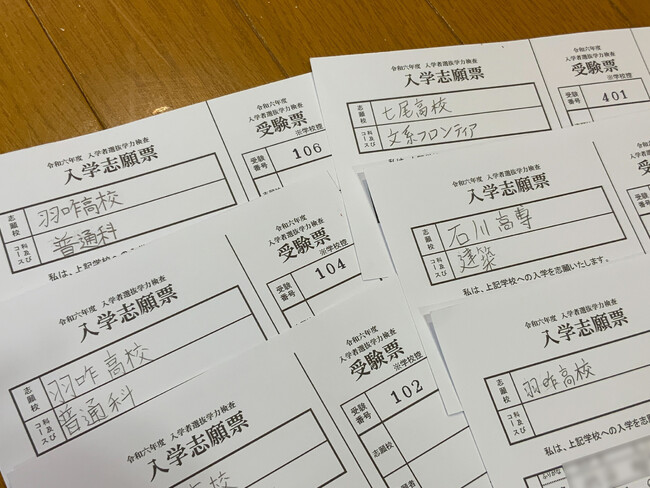 令和六年度 入学者選抜学力検査
入学志願票
志願校 羽咋高校
科及びコース 普通科
私は、上記学校への入
令和六年度
入学者選抜学力検査
受験票
※学校控
受験番号 106
志願校
令和六年度 入学者選抜学力検査
入学志願票
志願校 七尾高校
科及びコース 文系フロンティア
私は、上
令和六年度
入学者選抜学力検査
受験票
※学校控
受験番号 401
令和六年度 入学者選抜学力検査
入学志願票
志願校 石川高専
科及びコース 建築
私は、上記学校への入学を志願いたします。
受験番号
令和六年度 入学者選抜学力検査
入学志願票
志願校 羽咋高校
科及びコース 普通科
令和六年度
入学者選抜学力検査
受験票
※学校控
受験番号 104
令和六年度 入学者選抜学力検査
入学志願票
志願校 羽咋高校
科及びコース
私は、上記学校への入学を志願
令和六年度 入学者選抜学力検査
入学志願票
令和六年度
入学者選抜学力検査
受験票
※学校控
受験番号 102
志願校